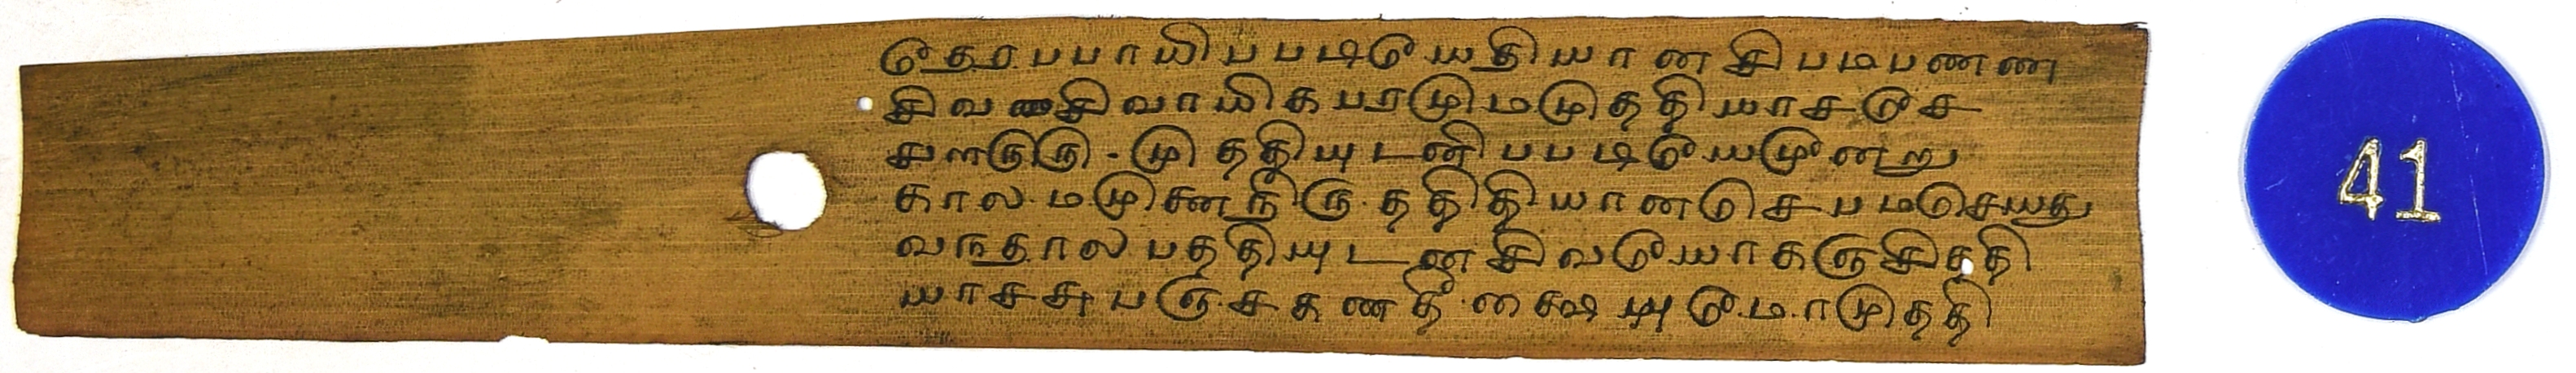 தேரபபாயிபபடியேயதியானசிபமபணண
சிவ சிவாயிகபரமுமமுததியாசசே
சுளருரு - முததியுடனிபபடியேயமூனறு
காலமமுனனிருதததியானசெபமசெயது
வநதாலபததியுடனசிவயோகஞசிததி
யாசசுபஞசகணதீ யுமோமுததி
41